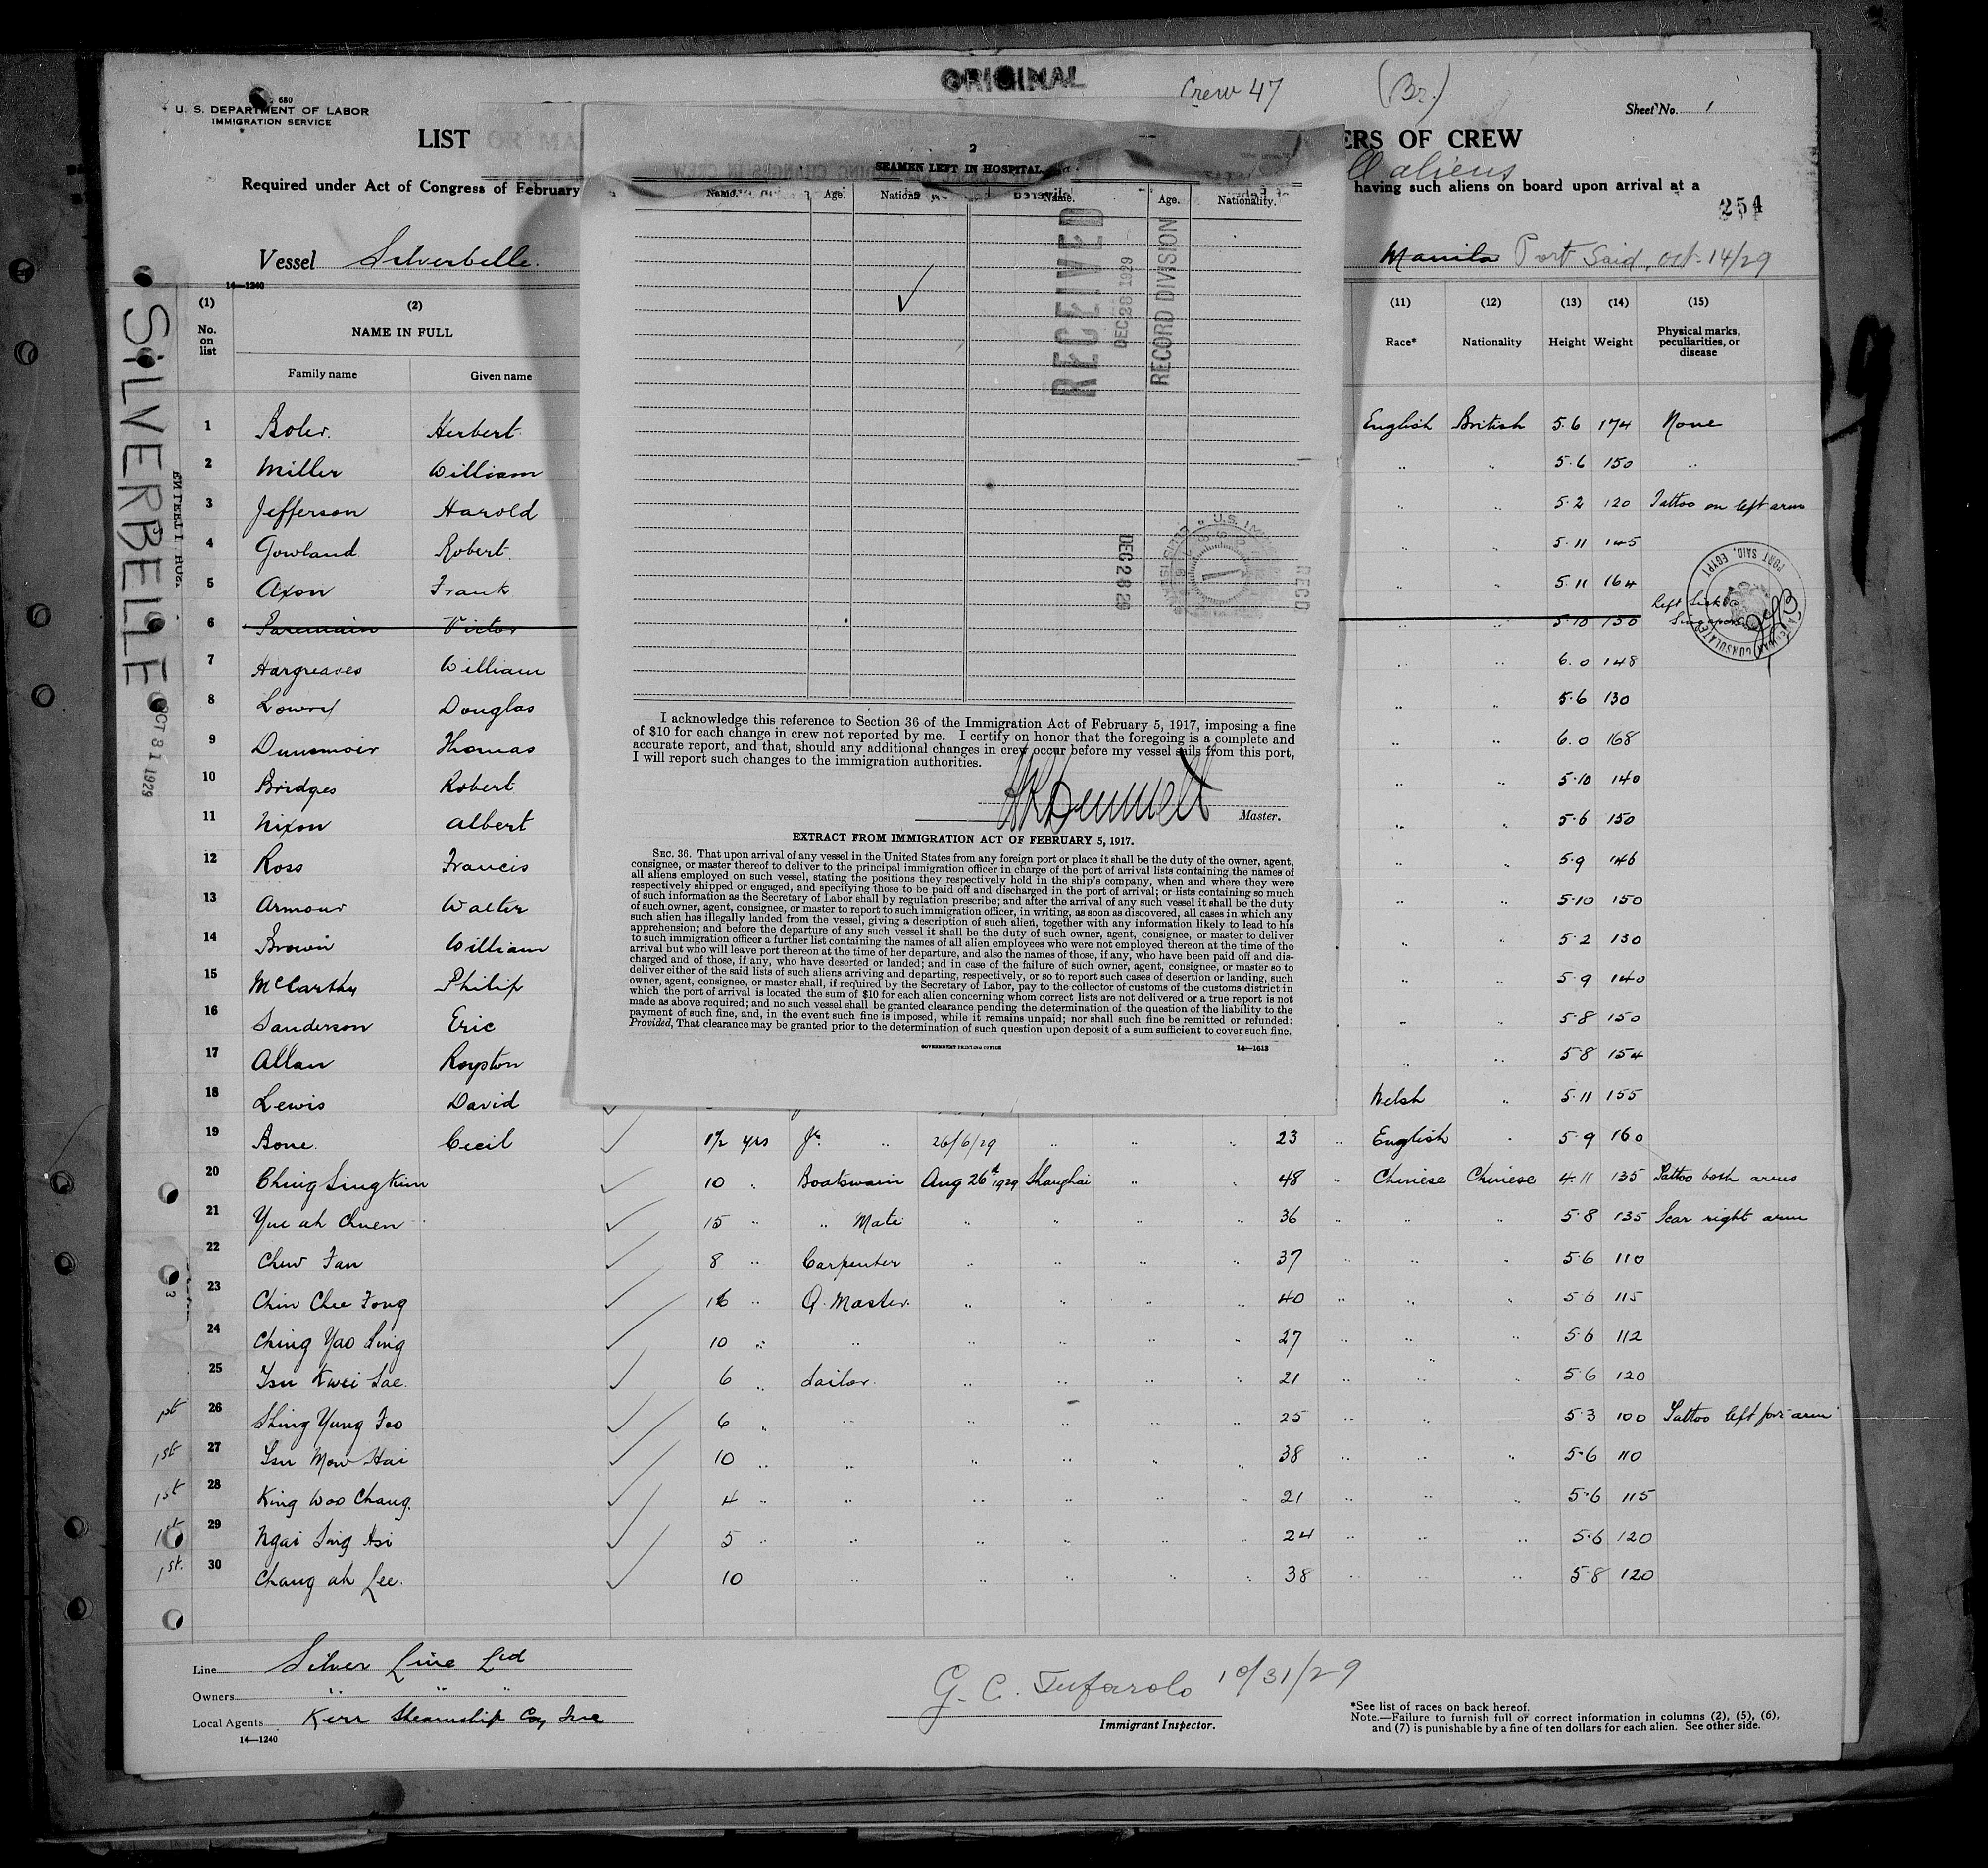 ORIGINAL
Crew 47
(Br.)
680
U. S. DEPARTMENT OF LABOR
IMMIGRATION SERVICE
Sheet No. 1
LIST OR MA
ERS OF CREW
ll aliens
Required under Act of Congress of February
having such aliens on board upon arrival at a
254
Vessel Silverbelle.
Manila Port Said, Oct. 14/29
14—1240
SILVERBELLE
OCT 31 1929
(1) (2)
No. on list
NAME IN FULL
Family name Given name
(11) (12) (13) (14) (15)
Race* Nationality Height Weight Physical marks, peculiarities, or disease
2
SEAMEN LEFT IN HOSPITAL
Name. Age. Nation Name. Age. Nationality.
RECEIVED
DEC 28 1929
RECORD DIVISION
DEC 28 29
RECD
I acknowledge this reference to Section 36 of the Immigration Act of February 5, 1917, imposing a fine
of $10 for each change in crew not reported by me. I certify on honor that the foregoing is a complete and
accurate report, and that, should any additional changes in crew occur before my vessel sails from this port,
I will report such changes to the immigration authorities.
Master.
EXTRACT FROM IMMIGRATION ACT OF FEBRUARY 5, 1917.
SEC. 36. That upon arrival of any vessel in the United States from any foreign port or place it shall be the duty of the owner, agent,
consignee, or master thereof to deliver to the principal immigration officer in charge of the port of arrival lists containing the names of
all aliens employed on such vessel, stating the positions they respectively hold in the ship's company, when and where they were
respectively shipped or engaged, and specifying those to be paid off and discharged in the port of arrival; or lists containing so much
of such information as the Secretary of Labor shall by regulation prescribe; and after the arrival of any such vessel it shall be the duty
of such owner, agent, consignee, or master to report to such immigration officer, in writing, as soon as discovered, all cases in which any
such alien has illegally landed from the vessel, giving a description of such alien, together with any information likely to lead to his
apprehension; and before the departure of any such vessel it shall be the duty of such owner, agent, consignee, or master to deliver
to such immigration officer a further list containing the names of all alien employees who were not employed thereon at the time of the
arrival but who will leave port thereon at the time of her departure, and also the names of those, if any, who have been paid off and dis-
charged and of those, if any, who have deserted or landed; and in case of the failure of such owner, agent, consignee, or master so to
deliver either of the said lists of such aliens arriving and departing, respectively, or so to report such cases of desertion or landing, such
owner, agent, consignee, or master shall, if required by the Secretary of Labor, pay to the collector of customs of the customs district in
which the port of arrival is located the sum of $10 for each alien concerning whom correct lists are not delivered or a true report is not
made as above required; and no such vessel shall be granted clearance pending the determination of the question of the liability to the
payment of such fine, and, in the event such fine is imposed, while it remains unpaid; nor shall such fine be remitted or refunded:
Provided, That clearance may be granted prior to the determination of such question upon deposit of a sum sufficient to cover such fine.
GOVERNMENT PRINTING OFFICE 14—1613
1 Boler. Herbert English British 5.6 174 None
2 Miller William " " 5.6 150 "
3 Jefferson Harold " " 5.2 120 Tattoo on left arm
4 Gowland Robert " " 5.11 145
5 Axon Frank " " 5.11 164
6 Victor " " 5.10 150 Left Sick Singapore
PORT SAID, EGYPT
AMERICAN CONSULATE
7 Hargreaves William " " 6.0 148
8 Lowry Douglas " " 5.6 130
9 Dunsmoir Thomas " " 6.0 168
10 Bridges Robert " " 5.10 140
11 Nixon Albert " " 5.6 150
12 Ross Francis " " 5.9 146
13 Armour Walter " " 5.10 150
14 Brown William " " 5.2 130
15 McCarthy Philip " " 5.9 140
16 Sanderson Eric " " 5.8 150
17 Allan Royston " " 5.8 154
18 Lewis David Welsh " 5.11 155
19 Bone. Cecil 1½ yrs Jr. " 26/6/29 " " " 23 " English " 5.9 160
20 Ching Sing Kum 10 " Boatswain Aug 26th 1929 Shanghai " " 48 " Chinese Chinese 4.11 135 Tattoo both arms
21 Yue ah Chuen 15 " " Mate " " " " 36 " " " 5.8 135 Scar right arm
22 Chew Fan 8 " Carpenter " " " " 37 " " " 5.6 110
23 Chin Chee Fong 16 " Q. Master. " " " " 40 " " " 5.6 115
24 Ching Yao Sing 10 " " " " " " 27 " " " 5.6 112
25 Tsu Kwei Sae. 6 " Sailor. " " " " 21 " " " 5.6 120
1st 26 Shing Yung Foo 6 " " " " " " 25 " " 5.3 100 Tattoo left for arm
1st 27 Tsu Mow Hai 10 " " " " " " 38 " " " 5.6 110
1st 28 King Woo Chang. 4 " " " " " " 21 " " " 5.6 115
1st 29 Ngai Sing Hsi 5 " " " " " " 24 " " " 5.6 120
1st. 30 Chang ah Lee. 10 " " " " " 38 " " " 5.8 120
Line Silver Line Ltd
Owners " " "
Local Agents Kerr Steamship Coy Inc
14—1240
G. C. Tufarolo 10/31/29
Immigrant Inspector.
*See list of races on back hereof.
Note.—Failure to furnish full or correct information in columns (2), (5), (6),
and (7) is punishable by a fine of ten dollars for each alien. See other side.